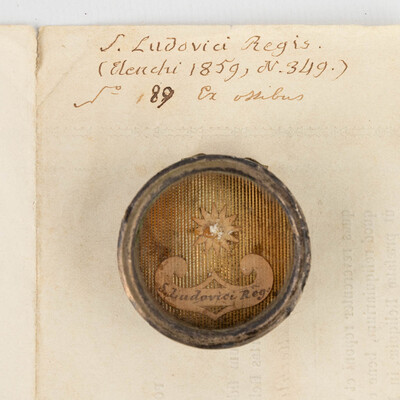 S. Ludovici Regis.
(Elenchi 1859, N. 349.)
No 189 Ex ossibus
S. Ludovici Reg.